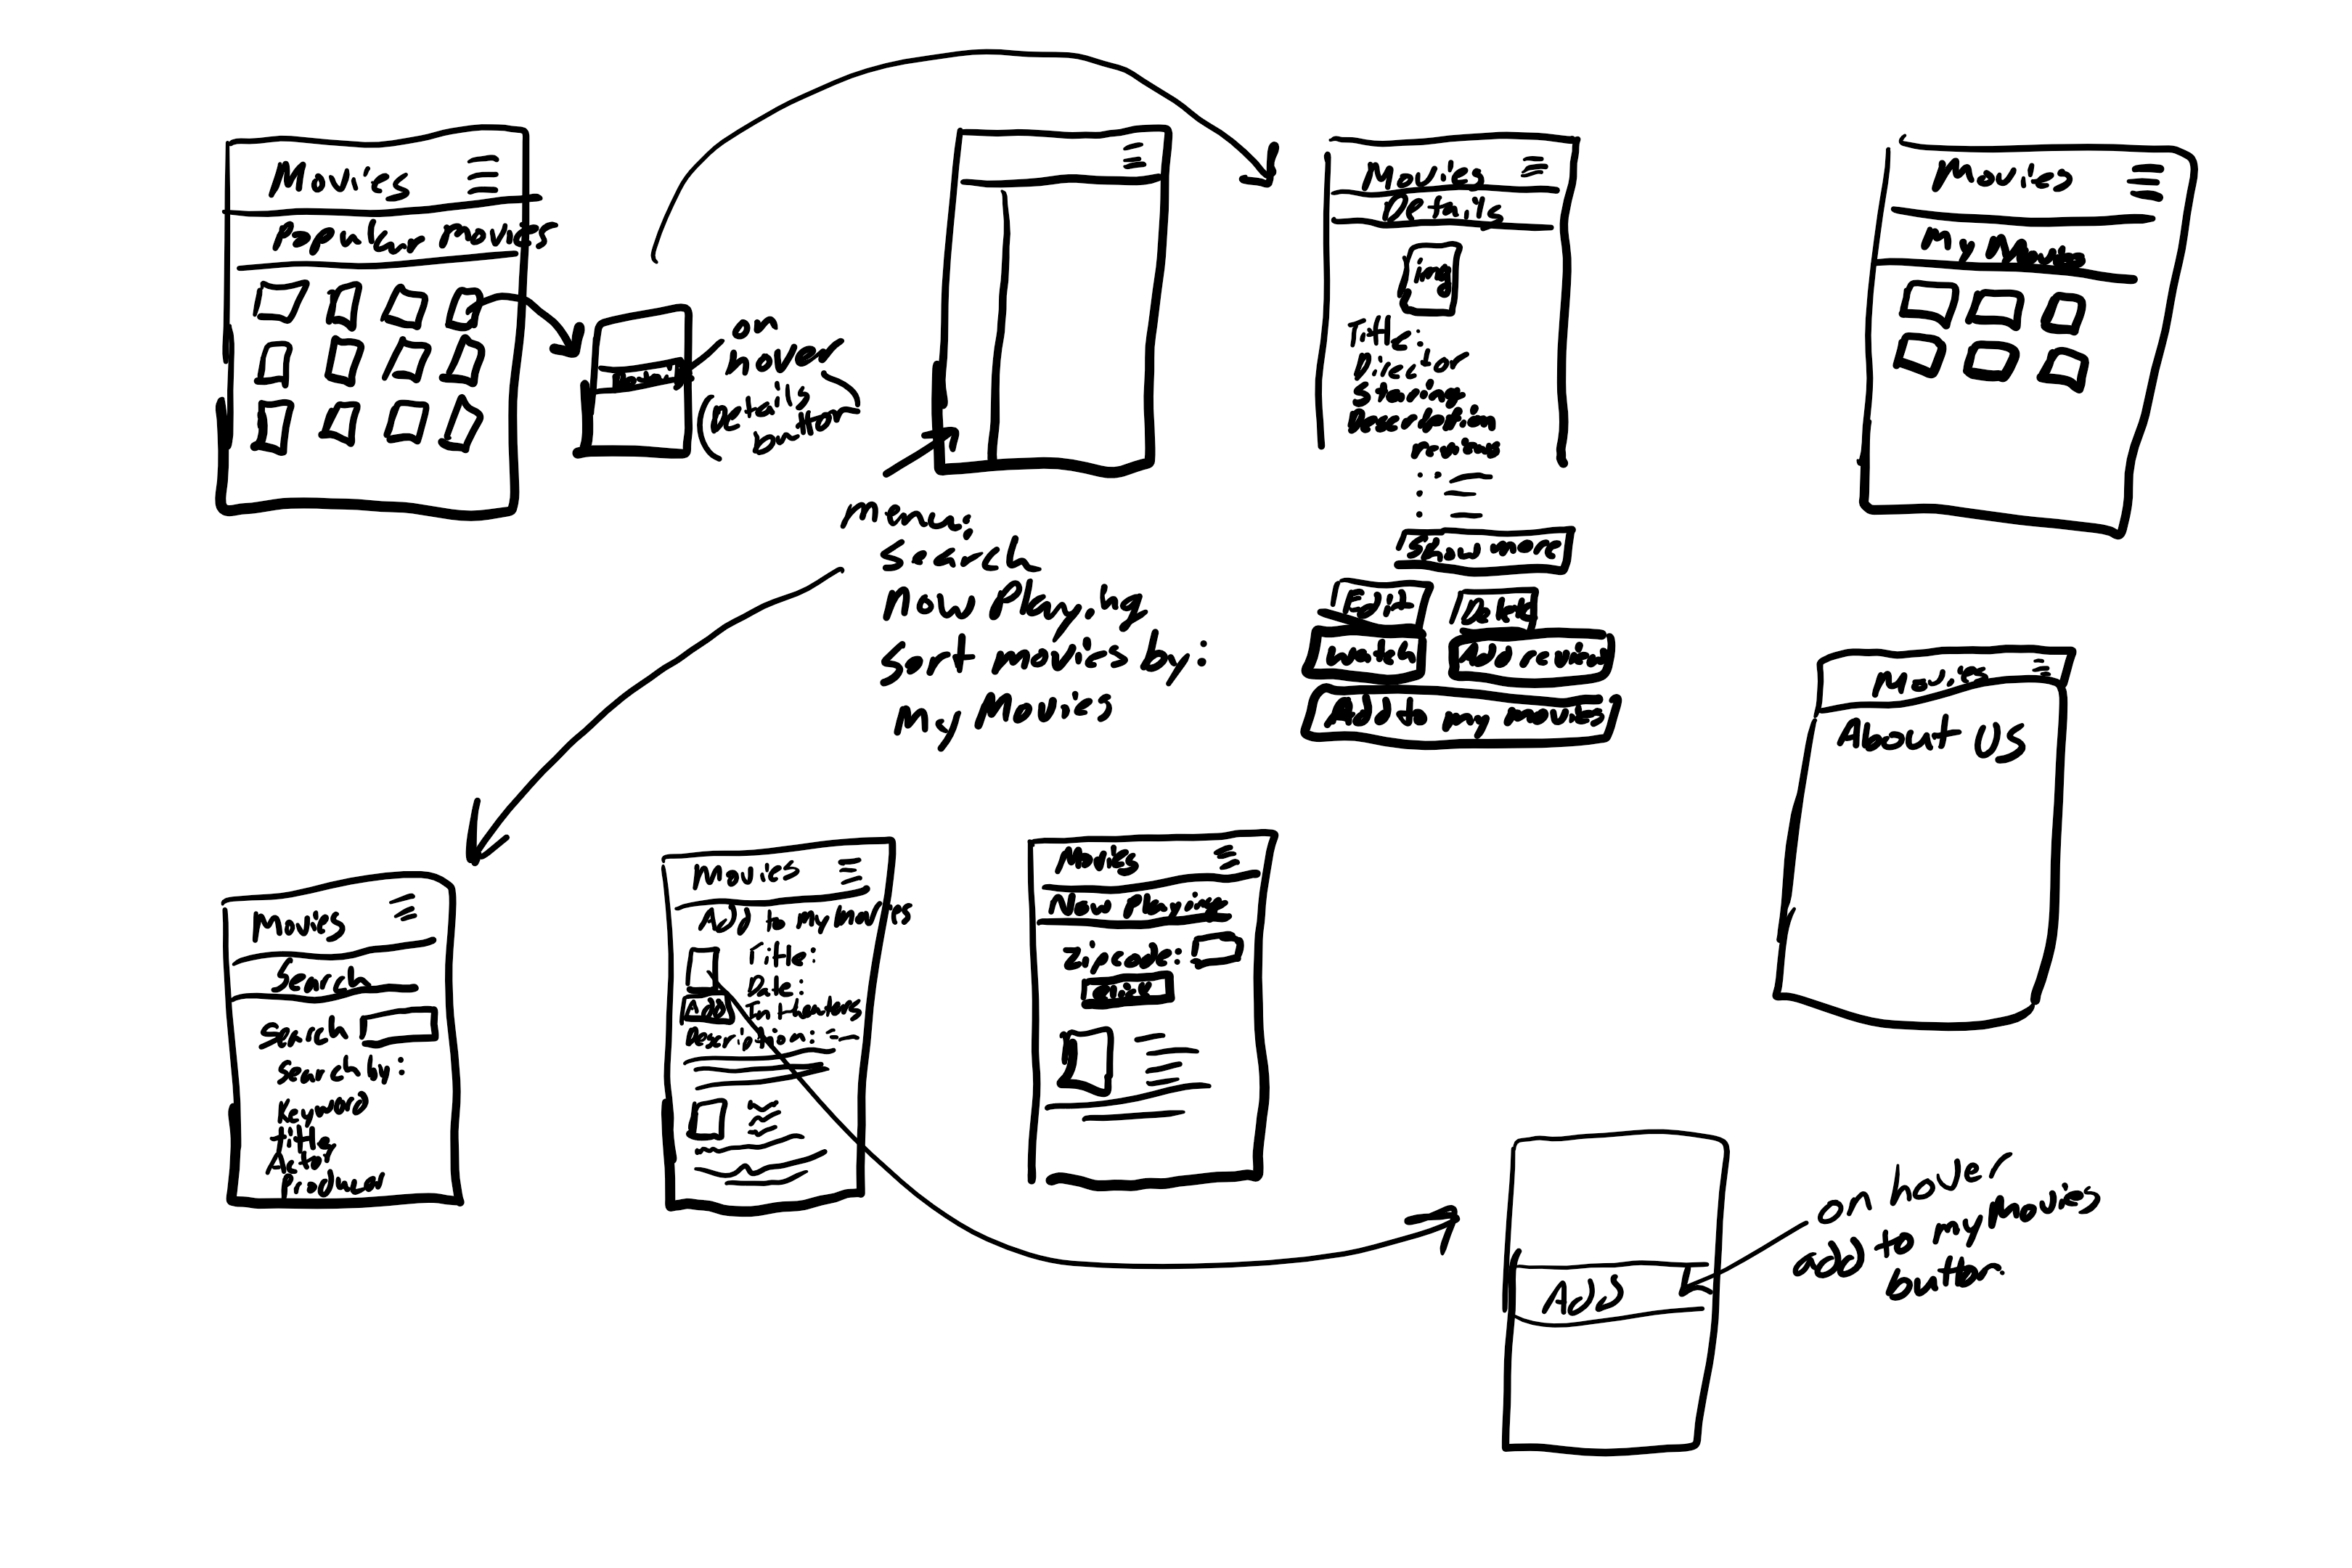 Movies
Popular movies
Details
on
hover
(Details
button)
menu:
Search
Now Playing
Sort movies by:
My Movies
Movies
Details
img
Title:
Director
Staring
Description
reviews
Show more
Edit
Delete
Watch
Add review
Add to my movies
Movies
My Movies
Movies
About US
Movies
Search
Search
Search by:
Keyword
Title
Actor
Producer
Movies
Add to my movies
Title:
Date:
Add
In theaters
Description:
Movies
Now Playing
Zipcode:
click
Add
on hover
add to my Movies
button